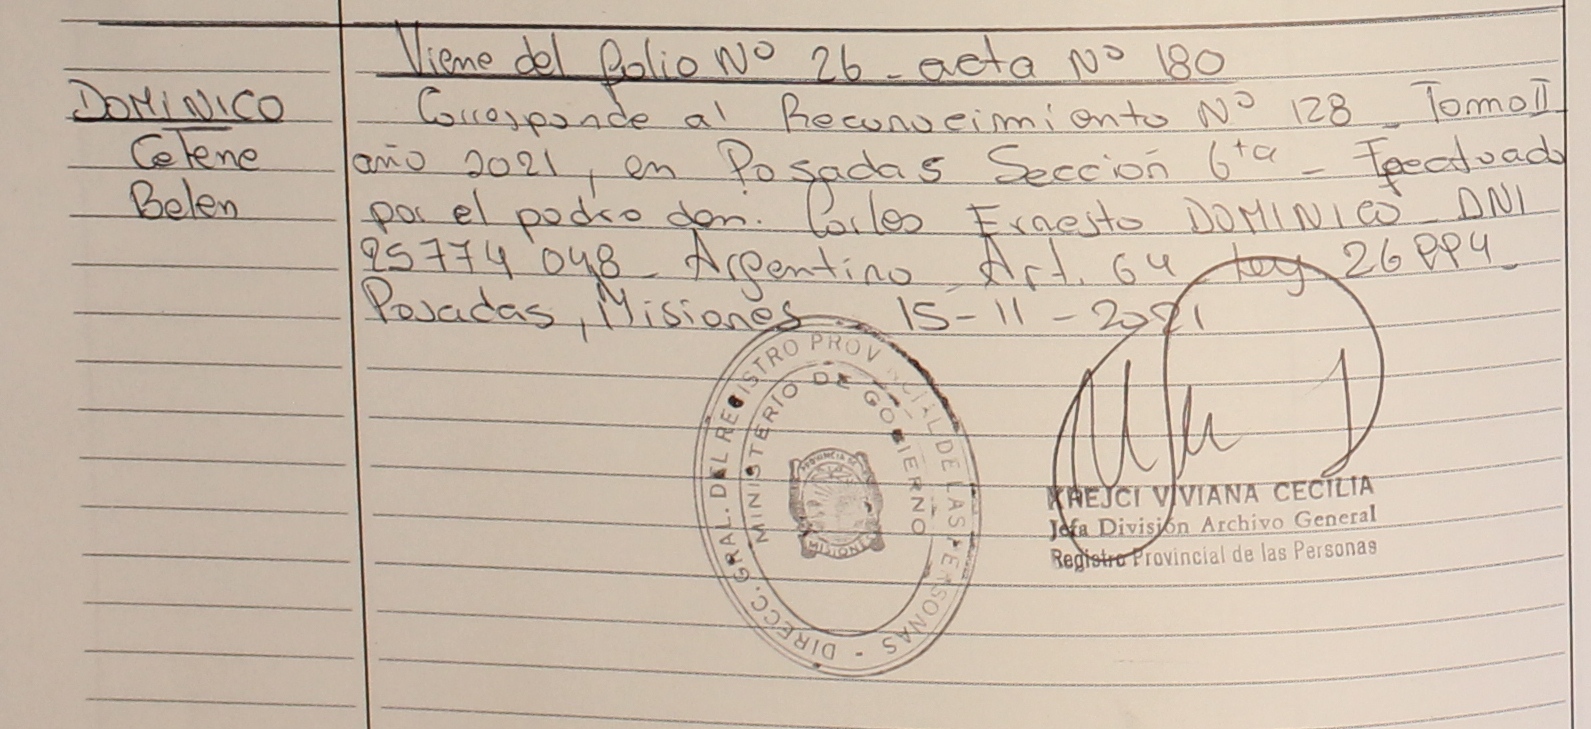 Viene del folio Nº 26 - acta Nº 180
DOMINICO
Celene
Belen
Corresponde al Reconocimiento Nº 128 - Tomo II
año 2021, en Posadas Sección 6ta - Efectuado
por el padre don. Carlos Ernesto DOMINICO - DNI
25774 048 - Argentino - Art. 64 - Ley 26994 -
Posadas, Misiones 15-11-2021
DIRECC. GRAL. DEL REGISTRO PROVINCIAL DE LAS PERSONAS -
MINISTERIO DE GOBIERNO
PROVINCIA DE
MISIONES
KREJCI VIVIANA CECILIA
Jefa División Archivo General
Registro Provincial de las Personas